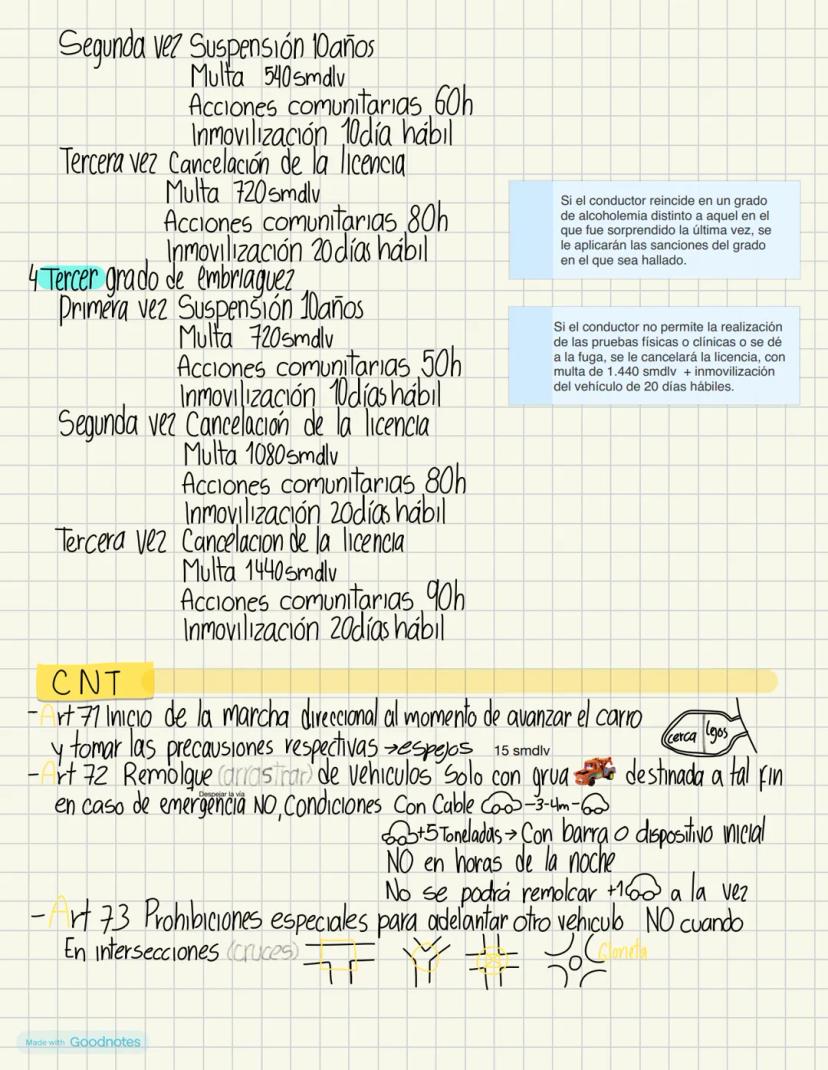 Segunda vez Suspensión 10años
Multa 540smdlv
Acciones comunitarias 60h
Inmovilización 10día hábil
Tercera vez Cancelación de la licencia
Multa 720smdlv
Acciones comunitarias 80h
Inmovilización 20días hábil
Si el conductor reincide en un grado
de alcoholemia distinto a aquel en el
que fue sorprendido la última vez, se
le aplicarán las sanciones del grado
en el que sea hallado.
4 Tercer grado de embriaguez
Primera vez Suspensión 10años
Multa 720smdlv
Acciones comunitarias 50h
Inmovilización 10días hábil
Si el conductor no permite la realización
de las pruebas físicas o clínicas o se dé
a la fuga, se le cancelará la licencia, con
multa de 1.440 smdlv + inmovilización
del vehículo de 20 días hábiles.
Segunda vez Cancelación de la licencia
Multa 1080smdlv
Acciones comunitarias 80h
Inmovilización 20días hábil
Tercera vez Cancelacion de la licencia
Multa 1440smdlv
Acciones comunitarias 90h
Inmovilización 20días hábil
CNT
-Art 71 Inicio de la marcha direccional al momento de avanzar el carro
y tomar las precausiones respectivas →espejos 15 smdlv
cerca legos
-Art 72 Remolque (arrastrar) de vehiculos Solo con grua destinada a tal fin
Despejar la vía
en caso de emergencia NO, Condiciones Con Cable -3-4m-
+5 Toneladas → Con barra o dispositivo inicial
NO en horas de la noche
No se podrá remolcar +1 a la vez
-Art 73 Prohibiciones especiales para adelantar otro vehiculo NO cuando
En intersecciones (cruces) Gloneta
Made with Goodnotes